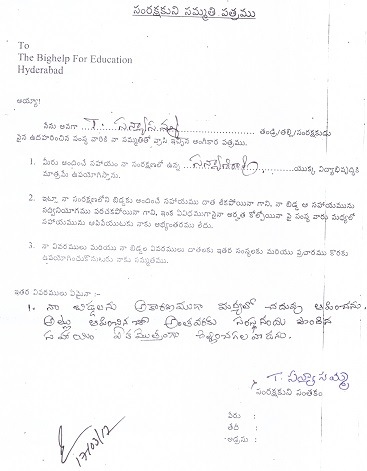 సంరక్షకుని సమ్మతి పత్రము
To
The Bighelp For Education
Hyderabad
అయ్యా!
నేను అనగా T. తండ్రి/తల్లి/సంరక్షకుడు
పైన ఉదహరించిన సంస్థ వారికి నా సమ్మతితో వ్రాసి ఇచ్చిన అంగీకార పత్రము.
1. మీరు అందించే సహాయం నా సంరక్షణలో ఉన్న యొక్క విద్యాభివృద్ధికి
మాత్రమే ఉపయోగిస్తాను.
2. ఇట్లూ నా సంరక్షణలోని బిడ్డకు అందించే సహాయము దాత లేకపోయినా గానీ, నా బిడ్డ ఆ సహాయమును
సద్వినియోగము పరచకపోయినా గాని, ఇంక ఏవిధముగానైనా అర్హత కోల్పోయినా పై సంస్థ వారు మధ్యలో
సహాయమును ఆపివేయుటకు నాకు అభ్యంతరము లేదు.
3. నా వివరములు మరియు నా బిడ్డల వివరములు దాతలకు ఇతర సంస్థలకు మరియు ప్రచారము కొరకు
ఉపయోగించుకొనుటకు నాకు సమ్మతము.
ఇతర వివరములు ఏమైనా :-
1. నా బిడ్డలను అకారణముగా మధ్యలో చదువు ఆపించను.
అట్లు ఆపించిన అంతవరకు సంస్థ చేసిన
సహాయం ఏక మొత్తంగా
T. సన్యాసమ్మ
సంరక్షకుని సంతకం
పేరు :
తేది :
అడ్రసు :
17/03/12